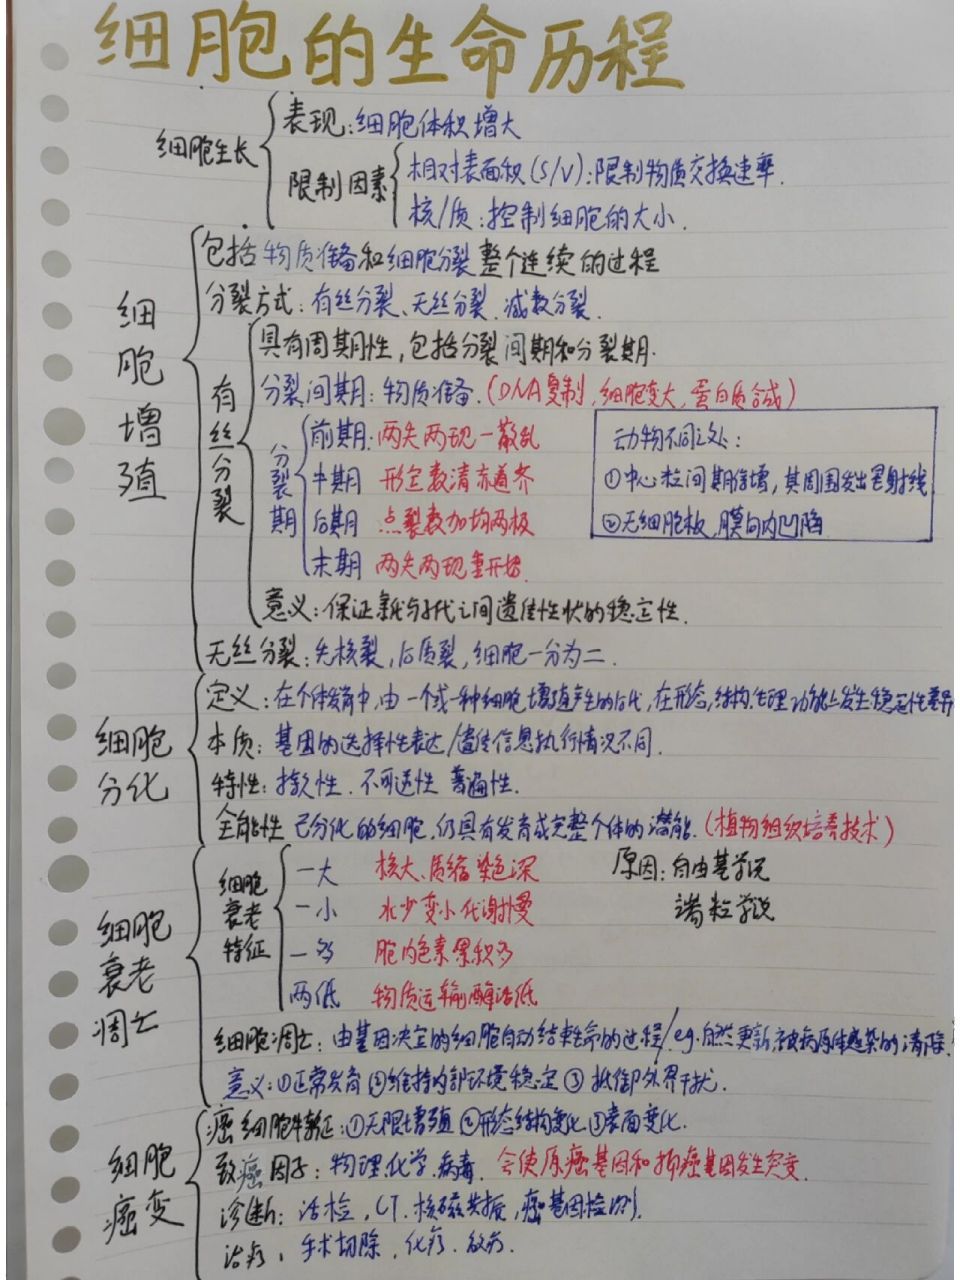 细胞的生命历程
细胞生长
表现:细胞体积增大
限制因素
相对表面积(S/V):限制物质交换速率.
核/质:控制细胞的大小.
细胞增殖
包括物质准备和细胞分裂整个连续的过程
分裂方式:有丝分裂、无丝分裂.减数分裂.
有丝分裂
具有周期性,包括分裂间期和分裂期.
分裂间期:物质准备.(DNA复制,细胞变大,蛋白质合成)
分裂期
前期:两失两现一散乱
中期 形定数清赤道齐
后期 点裂数加均两极
末期 两失两现重开始.
动物不同之处:
①中心粒间期倍增,其周围发出星射线
②无细胞板,膜向内凹陷
意义:保证亲代与子代之间遗传性状的稳定性.
无丝分裂:先核裂,后质裂,细胞一分为二.
细胞分化
定义:在个体发育中,由一个或一种细胞增殖产生的后代,在形态,结构,生理功能上发生稳定性差异
本质:基因的选择性表达/遗传信息执行情况不同.
特性:持久性.不可逆性 普遍性.
全能性 已分化的细胞,仍具有发育成完整个体的潜能.(植物组织培养技术)
细胞衰老凋亡
细胞衰老特征
一大 核大、质缩染色深
一小 水少变小代谢慢
一多 胞内色素累积多
两低 物质运输酶活低
原因:自由基学说
端粒学说
细胞凋亡:由基因决定的细胞自动结束生命的过程/eg.自然更新,被病原体感染的清除.
意义:①正常发育②维持内部环境稳定③抵御外界干扰.
细胞癌变
癌细胞特征:①无限增殖②形态结构变化③表面变化.
致癌因子:物理.化学.病毒.会使原癌基因和抑癌基因发生突变.
诊断:活检,CT.核磁共振,癌基因检测.
治疗:手术切除,化疗.放疗.